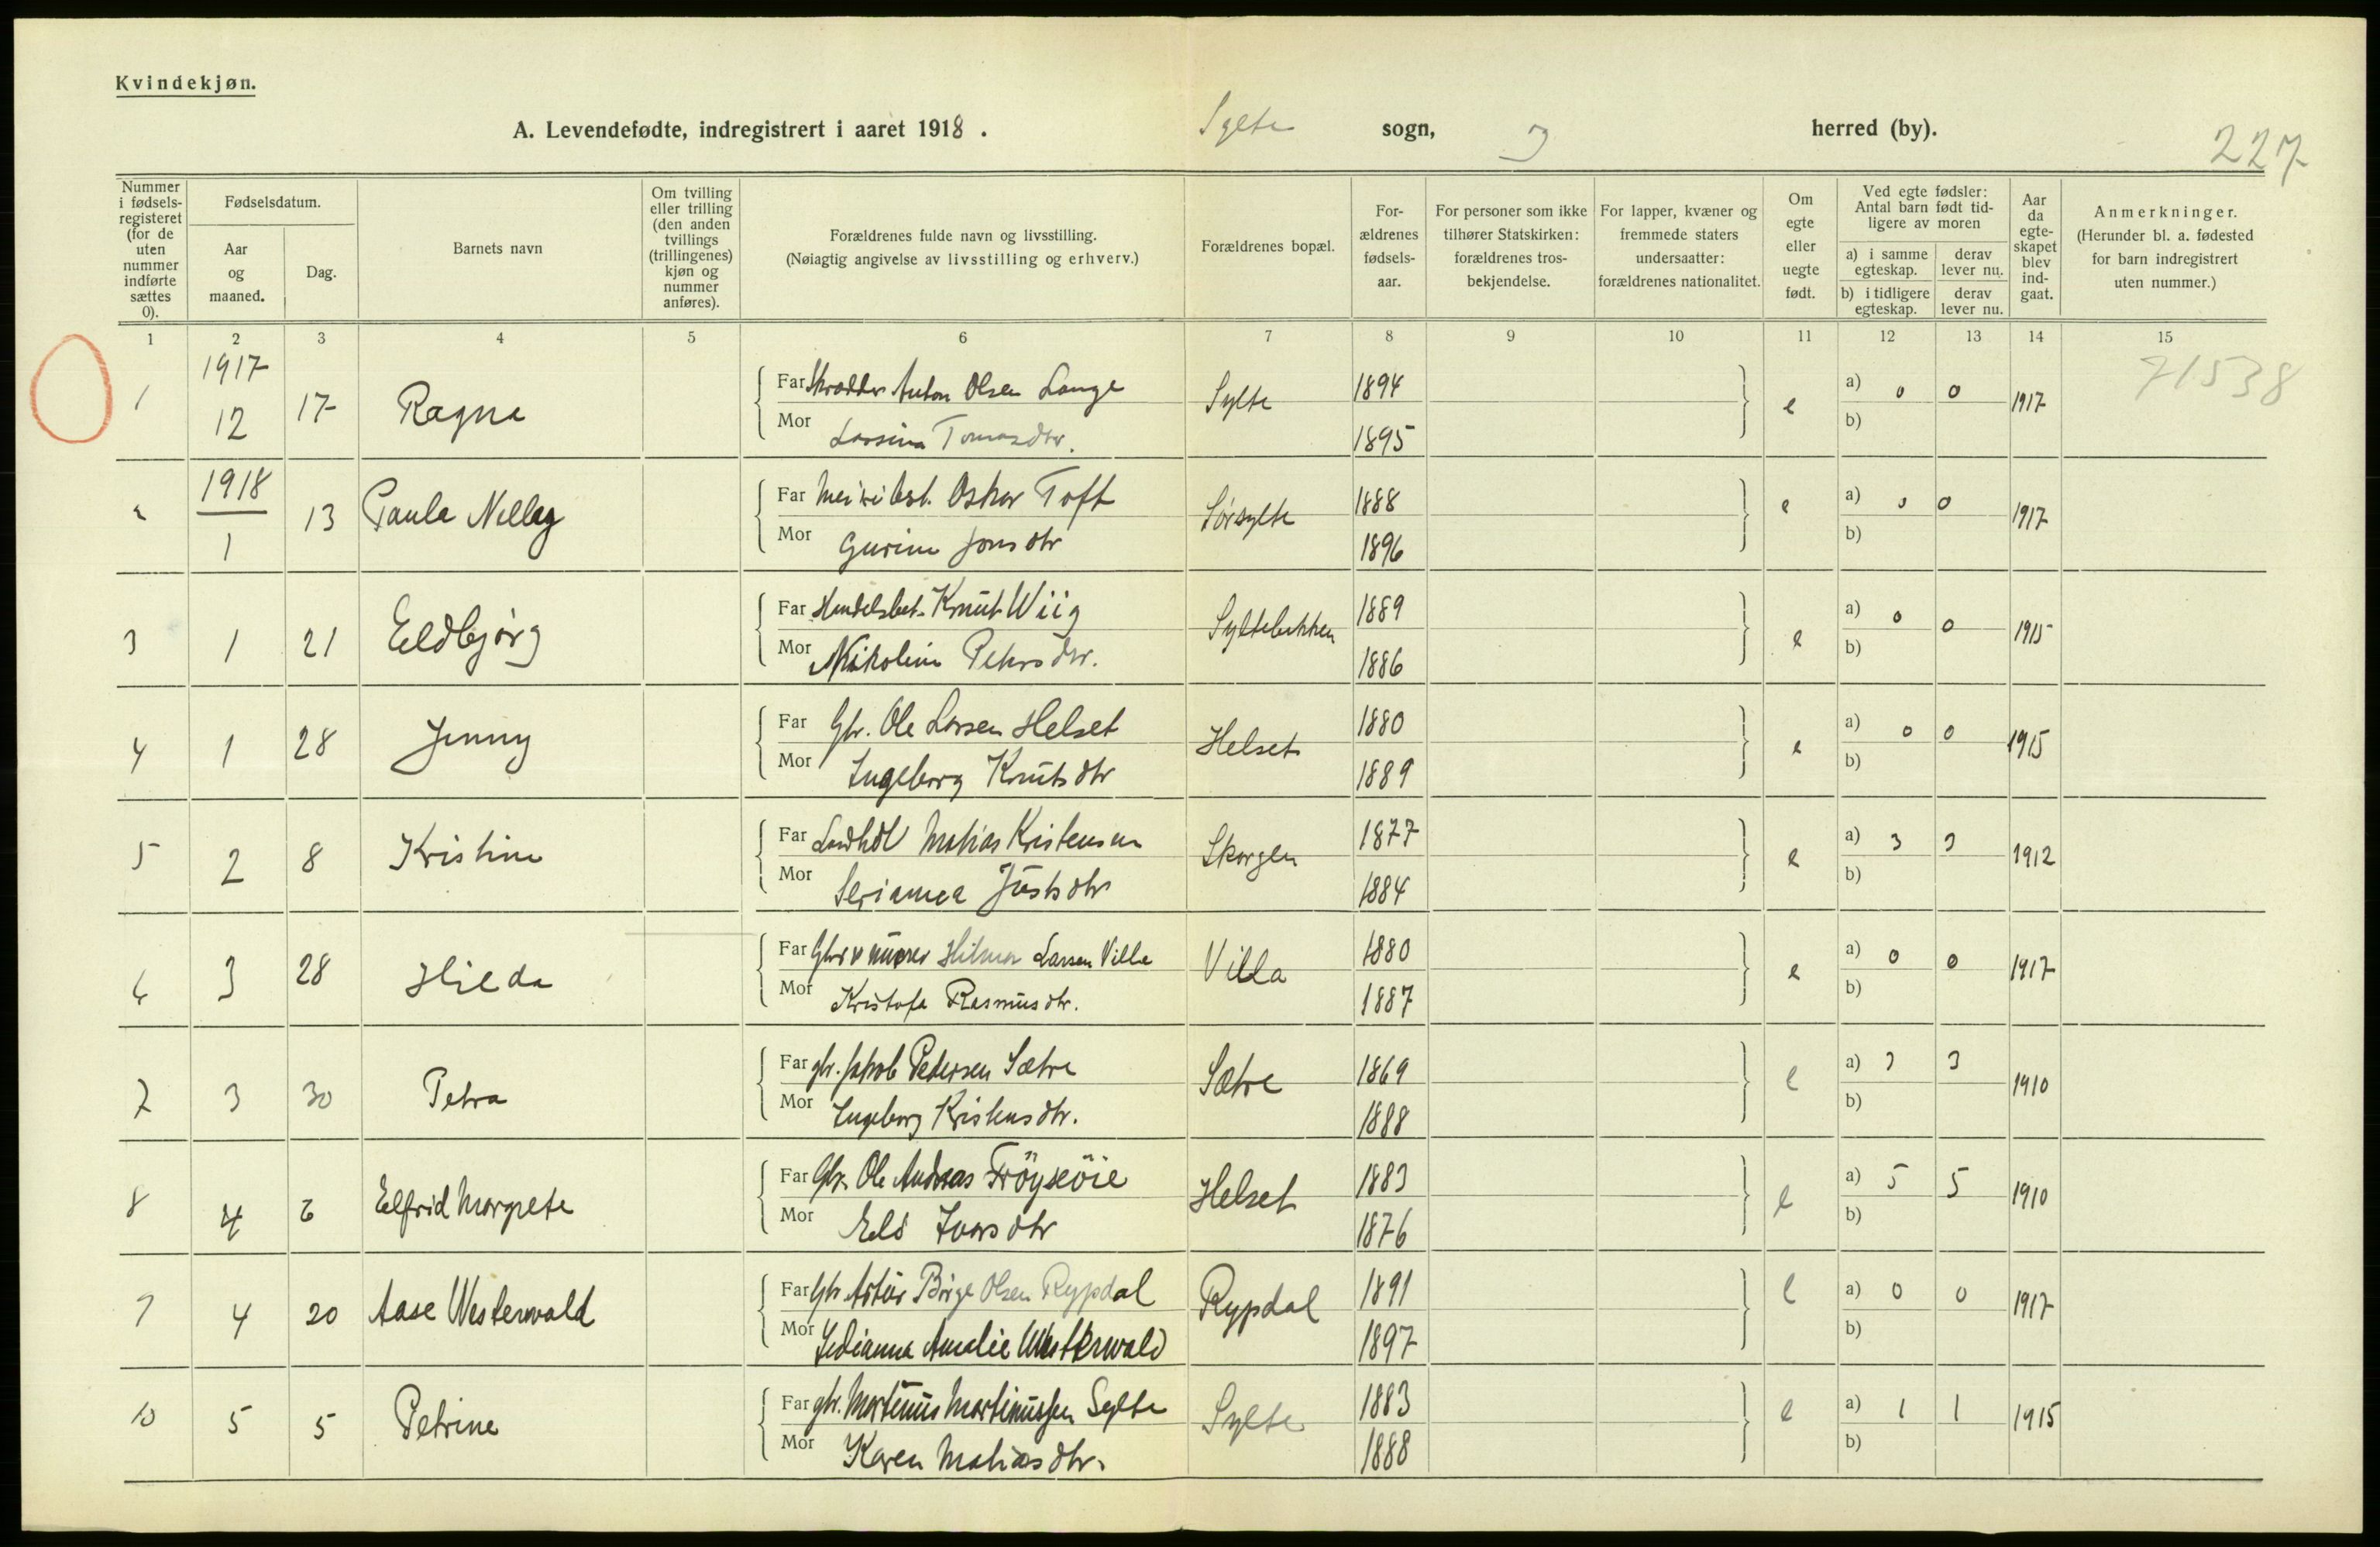 Kvindekjøn.
A. Levendefødte, indregistrert i aaret 1918 . Sylte sogn, herred (by).
227
Nummer i fødsels-registeret (for de uten nummer indførte sættes 0).
Fødselsdatum.
Aar og maaned.
Dag.
Barnets navn
Om tvilling eller trilling (den anden tvillings (trillingenes) kjøn og nummer anføres).
Forældrenes fulde navn og livsstilling.
(Nøiagtig angivelse av livsstilling og erhverv.)
Forældrenes bopæl.
For-ældrenes fødsels-aar.
For personer som ikke tilhører Statskirken: forældrenes tros-bekjendelse.
For lapper, kvæner og fremmede staters undersaatter: forældrenes nationalitet.
Om egte eller uegte født.
Ved egte fødsler: Antal barn født tid-ligere av moren
a) i samme egteskap.
derav lever nu.
b) i tidligere egteskap.
derav lever nu.
Aar da egte-skapet blev ind-gaat.
Anmerkninger.
(Herunder bl. a. fødested for barn indregistrert uten nummer.)
1 2 3 4 5 6 7 8 9 10 11 12 13 14 15
1 1917 12 17 Ragna Far Skrædder Anton Olsen Lange Sylte 1894 e a) 0 0 1917 71538
Mor Lassina Tomasdtr. 1895 b)
2 1918 1 13 Paula Nelly Far Meieribest. Oskar Toft Sørsylte 1888 e a) 0 0 1917
Mor Gurine Jonsdtr 1896 b)
3 1 21 Eldbjørg Far Handelsbet. Knut Wiig Syltebakken 1889 e a) 0 0 1915
Mor Nikoline Petersdtr. 1886 b)
4 1 28 Jenny Far Gbr. Ole Larsen Helset Helset 1880 e a) 0 0 1915
Mor Ingeborg Knutsdtr 1889 b)
5 2 8 Kristine Far Landhdl Matias Kristensen Skorgen 1877 e a) 3 3 1912
Mor Serianna Justsdtr 1884 b)
6 3 28 Hilda Far Gbr v murer Hilmar Larsen Villa Villa 1880 e a) 0 0 1917
Mor Kristofa Rasmusdtr. 1887 b)
7 3 30 Petra Far gbr. Jakob Pedersen Sætre Sætre 1869 e a) 3 3 1910
Mor Ingeborg Kristensdtr. 1888 b)
8 4 6 Elfrid Margrete Far Gbr. Ole Andreas Frøysøie Helset 1883 e a) 5 5 1910
Mor Eli Ivarsdtr 1876 b)
9 4 20 Aase Westerwald Far Gbr Artur Børge Olsen Rypdal Rypdal 1891 e a) 0 0 1917
Mor Amalie Westerwald 1897 b)
10 5 5 Petrine Far gbr. Martinus Martinussen Sylte Sylte 1883 e a) 1 1 1915
Mor Karen Matiasdtr. 1888 b)